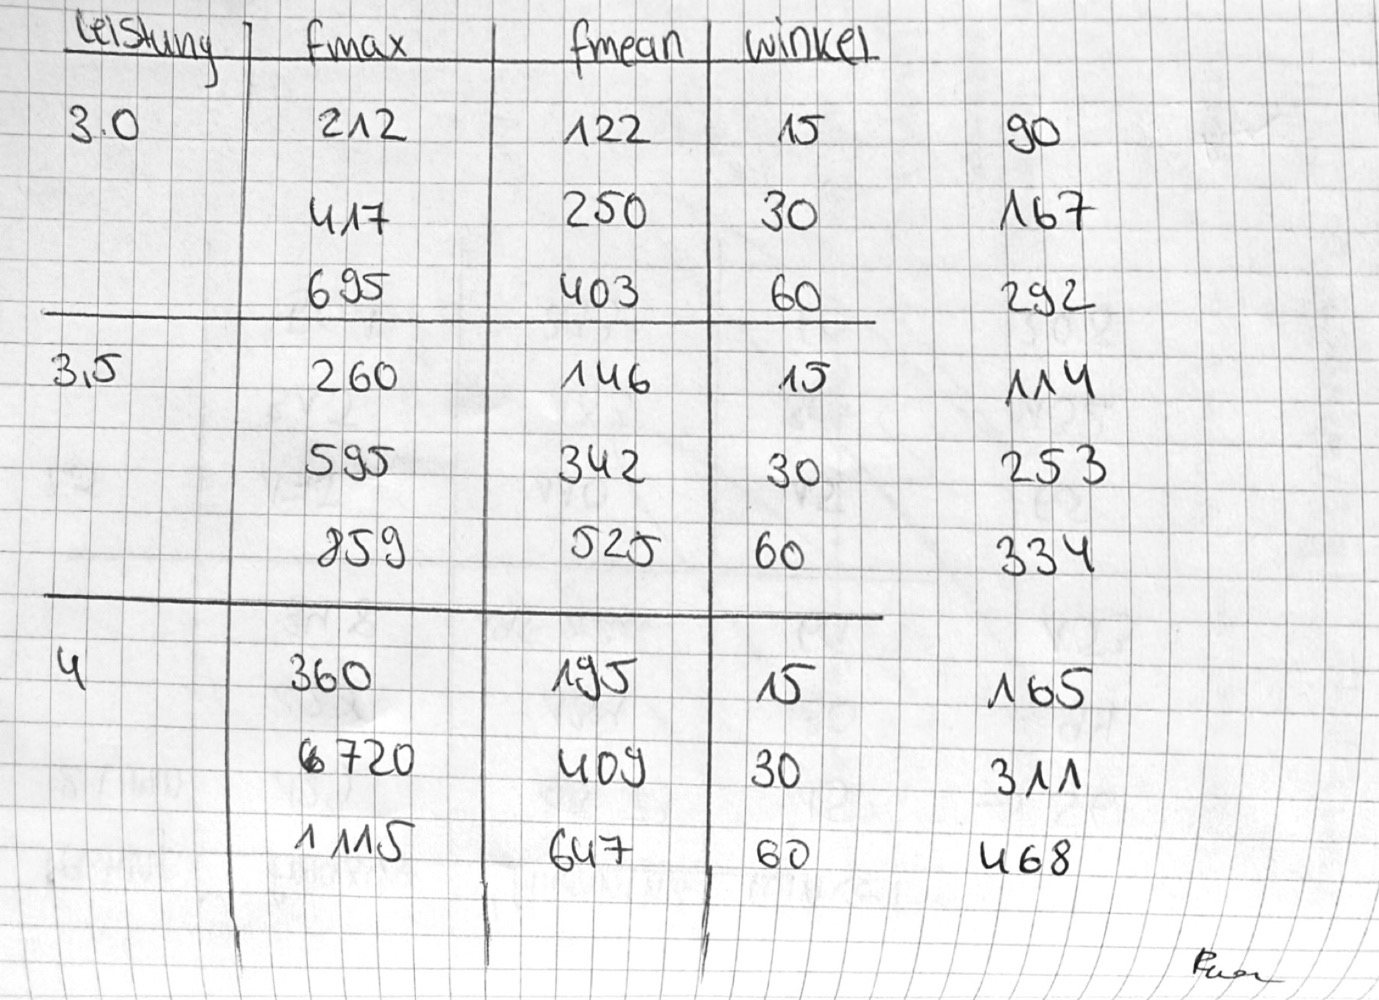 Leistung fmax fmean Winkel
3.0 212 122 15 90
417 250 30 167
695 403 60 292
3,5 260 146 15 114
595 342 30 253
859 525 60 334
4 360 195 15 165
720 409 30 311
1115 647 60 468